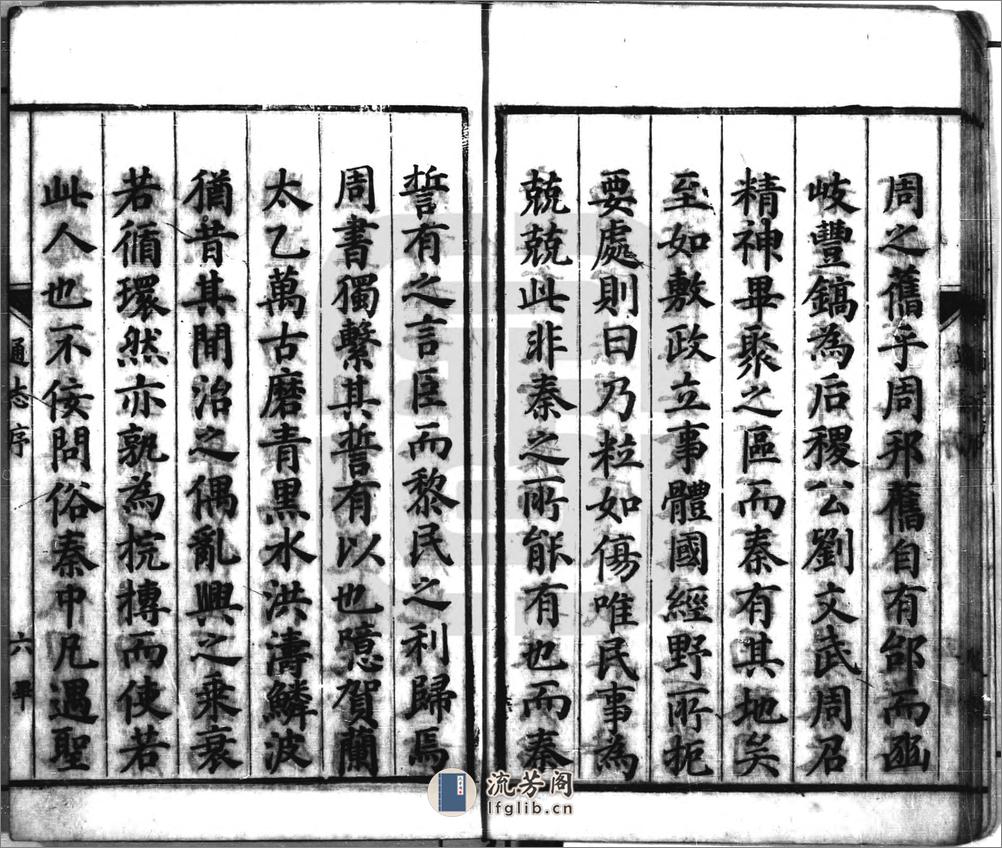 周之舊乎周邦舊自有邰而豳
岐豐鎬為后稷公劉文武周召
精神畢聚之區而秦有其地矣
至如敷政立事體國經野所扼
要處則曰乃粒如傷唯民事為
兢兢此非秦之所能有也而秦
誓有之言臣而黎民之利歸焉
周書獨繫其誓有以也噫賀蘭
太乙萬古磨青黑水洪濤鱗波
猶昔其間治之偶亂興之乘衰
若循環然亦孰為抏摶而使若
此人也不佞問俗秦中凡遇聖
通志序
六
畢
流芳阁
lfglib.cn